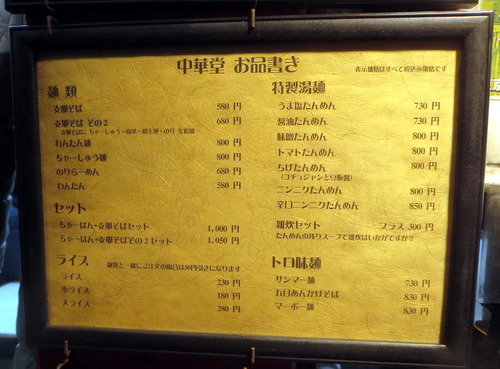 中華堂 お品書き
表示価格はすべて税込み価格です
麺類
支那そば 580 円
支那そば その2 680 円
わんたん麺 800 円
ちゃーしゅう麺 800 円
のりらーめん 680 円
わんたん 580 円
セット
ちゃーはん・支那そばセット 1,000 円
ちゃーはん・支那そばその2セット 1,050 円
ライス 麺類と一緒にご注文の場合は50円引きになります
ライス 230 円
小ライス 180 円
大ライス 280 円
特製湯麺
うま塩たんめん 730 円
醤油たんめん 730 円
味噌たんめん 800 円
トマトたんめん 800 円
ちげたんめん 800 円
ニンニクたんめん 800 円
辛口ニンニクたんめん 850 円
雑炊セット プラス 300 円
たんめんの残りスープで雑炊はいかがですか?
トロ味麺
サンマー麺 730 円
五目あんかけそば 830 円
マーボー麺 830 円